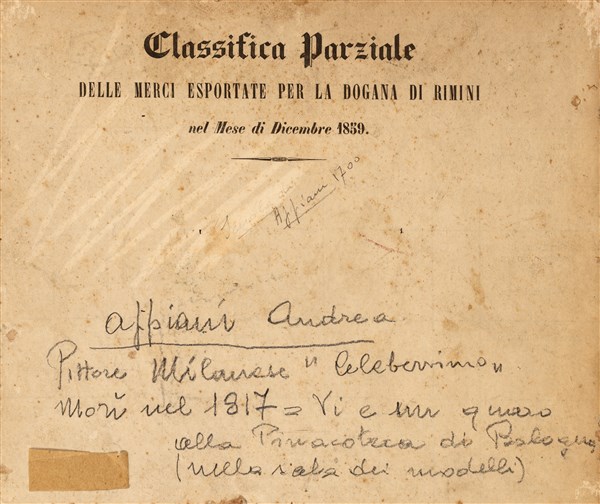 Classifica Parziale
DELLE MERCI ESPORTATE PER LA DOGANA DI RIMINI
nel Mese di Dicembre 1859.
Appiani 1700
Appiani Andrea
Pittore Milanese "Celeberrimo"
Morì nel 1817 = Vi è un quaro
alla Pinacoteca di Bologna
(nella sala dei modelli)